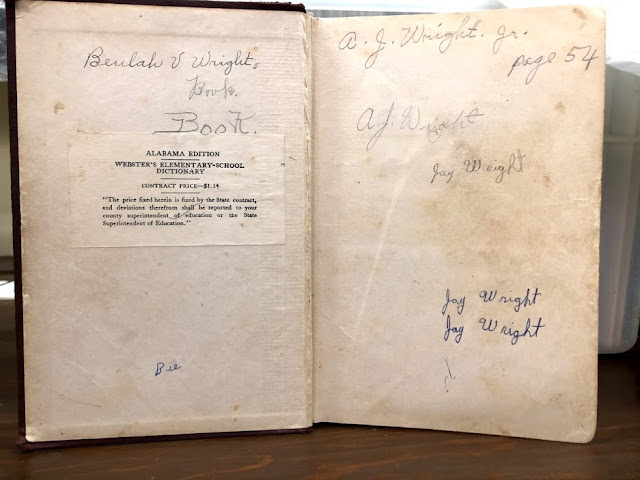 Beulah V Wright.
Book.
Book.
ALABAMA EDITION
WEBSTER'S ELEMENTARY-SCHOOL
DICTIONARY
CONTRACT PRICE—$1.14
"The price fixed herein is fixed by the State contract,
and deviations therefrom shall be reported to your
county superintendent of education or the State
Superintendent of Education."
Bee
A. J. Wright. Jr.
page 54
A.J. Wright
Jay Wright
Jay Wright
Jay Wright
J